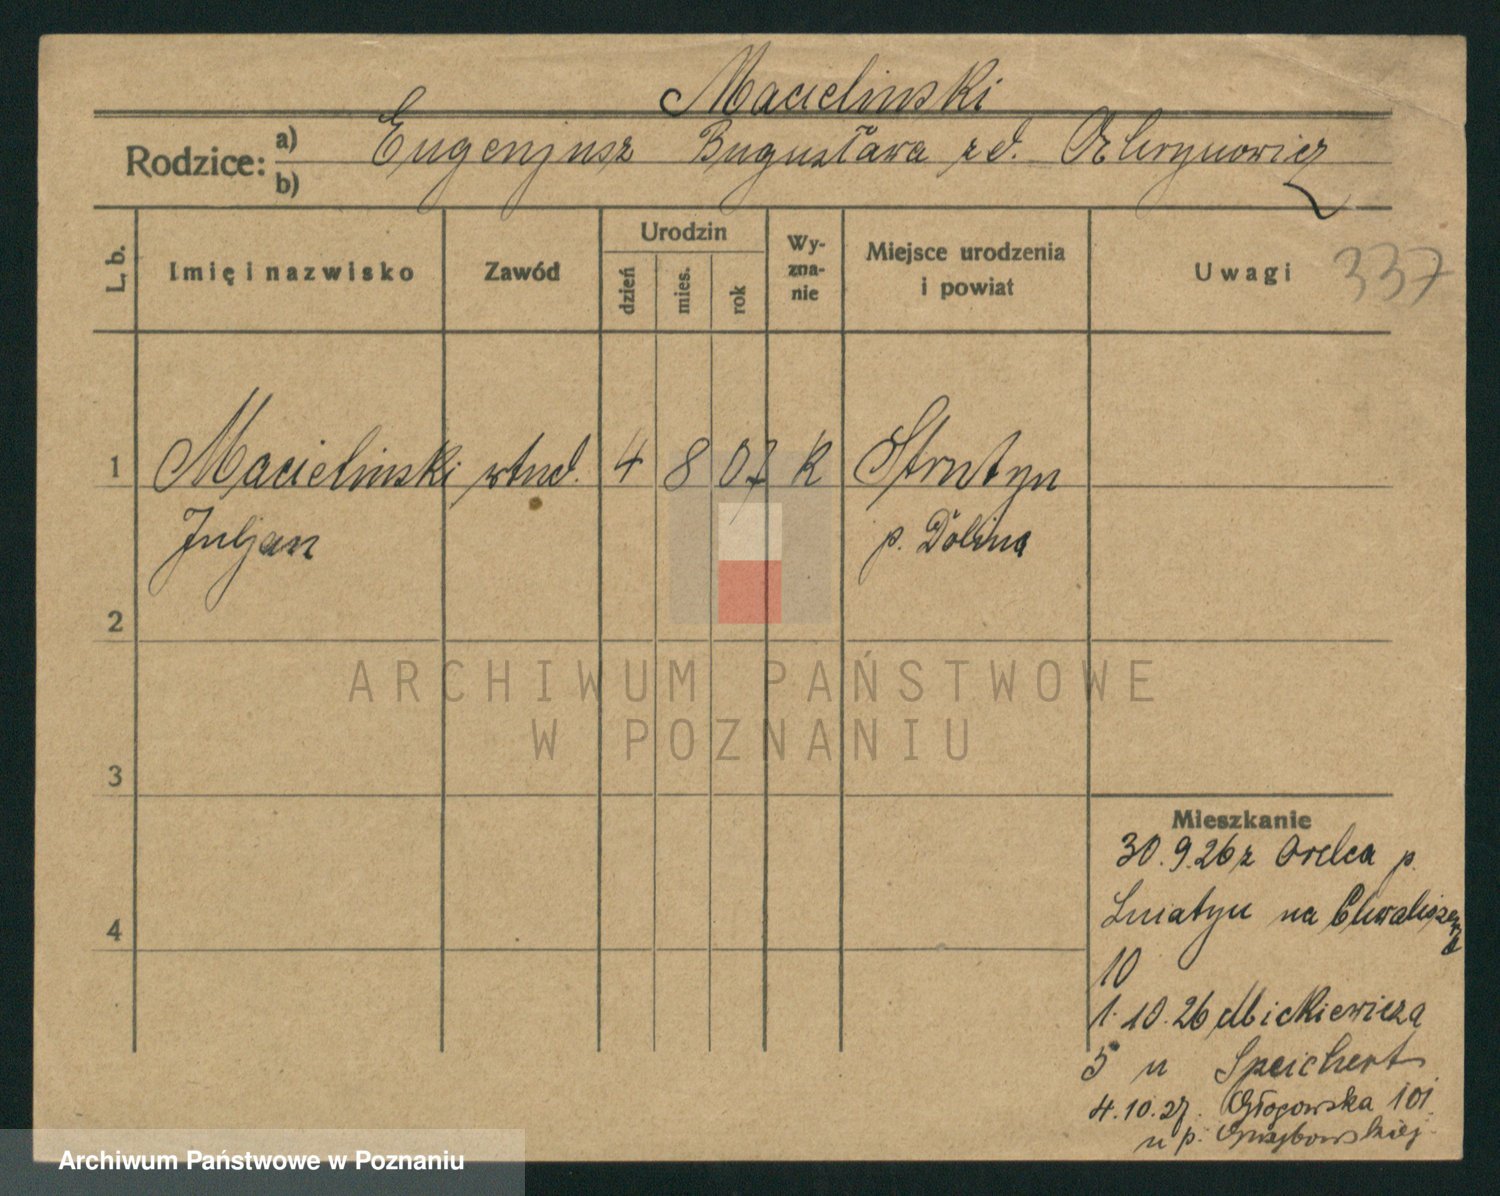 Macielinski
Rodzice: a) Eugenjusz Bugusława z d.
b)
L. b.
Imię i nazwisko
Zawód
Urodzin
dzień
mies.
rok
Wy-
zna-
nie
Miejsce urodzenia
i powiat
Uwagi
337
1 Macielinski stud. 4 8 07 K Strutyn
Juljan p. Dolina
2
3
4
Mieszkanie
30.9.26 z Orelca p.
Sniatyn na Chwaliszewo
10
1.10.26 Mickiewicza
5 u Speichert
4.10.27. Głogowska 101
u p.
ARCHIWUM PAŃSTWOWE
W POZNANIU
Archiwum Państwowe w Poznaniu